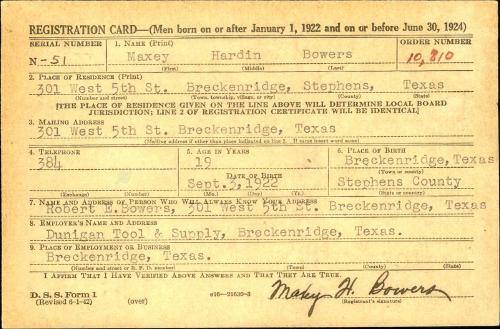 REGISTRATION CARD—(Men born on or after January 1, 1922 and on or before June 30, 1924)
SERIAL NUMBER 1. NAME (Print) ORDER NUMBER
N-51 Maxey Hardin Bowers 10,810
(First) (Middle) (Last)
2. PLACE OF RESIDENCE (Print)
301 West 5th St. Breckenridge, Stephens, Texas
(Number and street) (Town, township, village, or city) (County) (State)
[THE PLACE OF RESIDENCE GIVEN ON THE LINE ABOVE WILL DETERMINE LOCAL BOARD
JURISDICTION; LINE 2 OF REGISTRATION CERTIFICATE WILL BE IDENTICAL]
3. MAILING ADDRESS
301 West 5th St. Breckenridge, Texas
(Mailing address if other than place indicated on line 2. If same insert word same)
4. TELEPHONE 5. AGE IN YEARS 6. PLACE OF BIRTH
384 19 Breckenridge, Texas
DATE OF BIRTH (Town or county)
Sept. 3, 1922 Stephens County
(Exchange) (Number) (Mo.) (Day) (Yr.) (State or country)
7. NAME AND ADDRESS OF PERSON WHO WILL ALWAYS KNOW YOUR ADDRESS
Robert E. Bowers, 301 West 5th St. Breckenridge, Texas
8. EMPLOYER'S NAME AND ADDRESS
Dunigan Tool & Supply, Breckenridge, Texas.
9. PLACE OF EMPLOYMENT OR BUSINESS
Breckenridge, Texas.
(Number and street or R. F. D. number) (Town) (County) (State)
I AFFIRM THAT I HAVE VERIFIED ABOVE ANSWERS AND THAT THEY ARE TRUE.
D. S. S. Form 1
(Revised 6-1-42) (over) e16—21630-2 Maxey H. Bowers
(Registrant's signature)